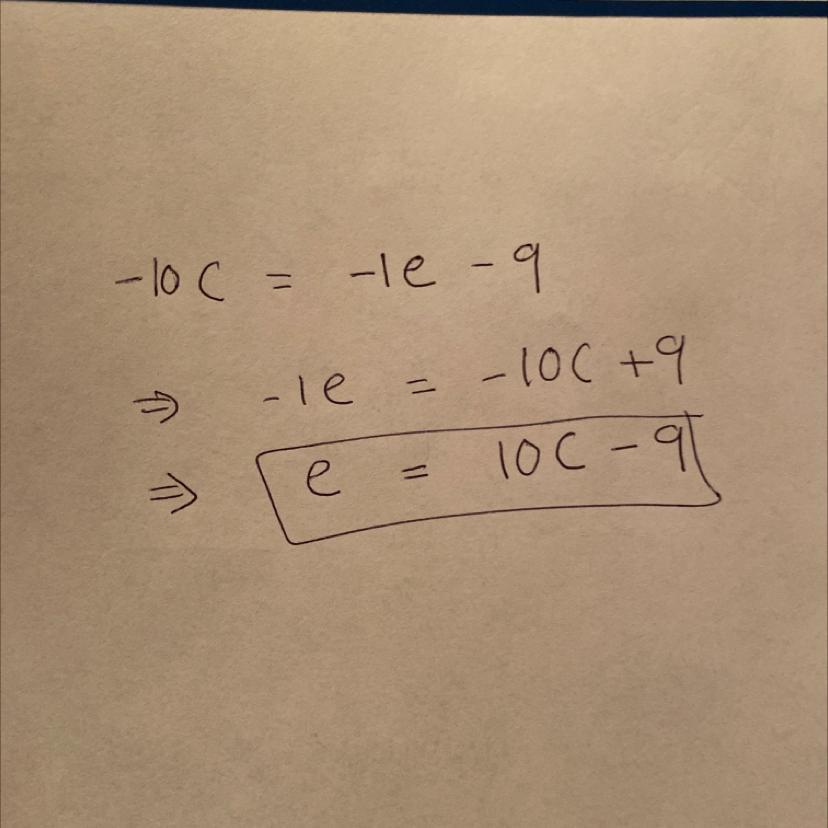 -10c = -1e - 9
⇒ -1e = -10c + 9
⇒ e = 10c - 9